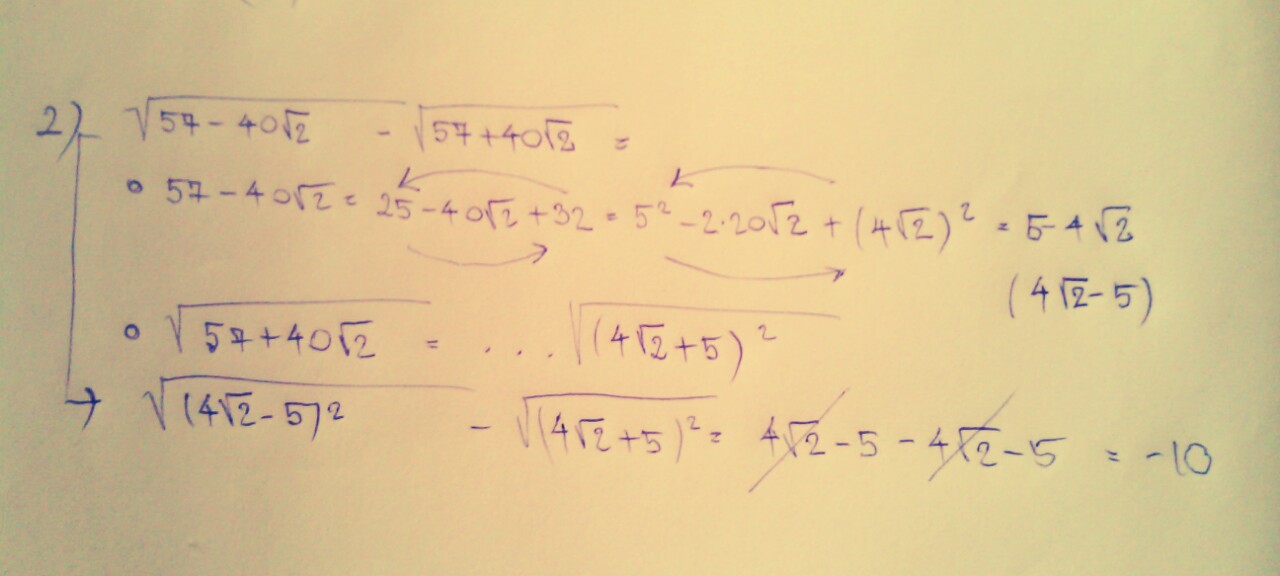 2) √57-40√2 - √57+40√2 =
° 57-40√2 = 25-40√2+32 = 5² -2·20√2 + (4√2)² = 5-4√2
(4√2-5)
° √57+40√2 = ... √(4√2+5)²
→ √(4√2-5)² - √(4√2+5)² = 4√2-5-4√2-5 = -10